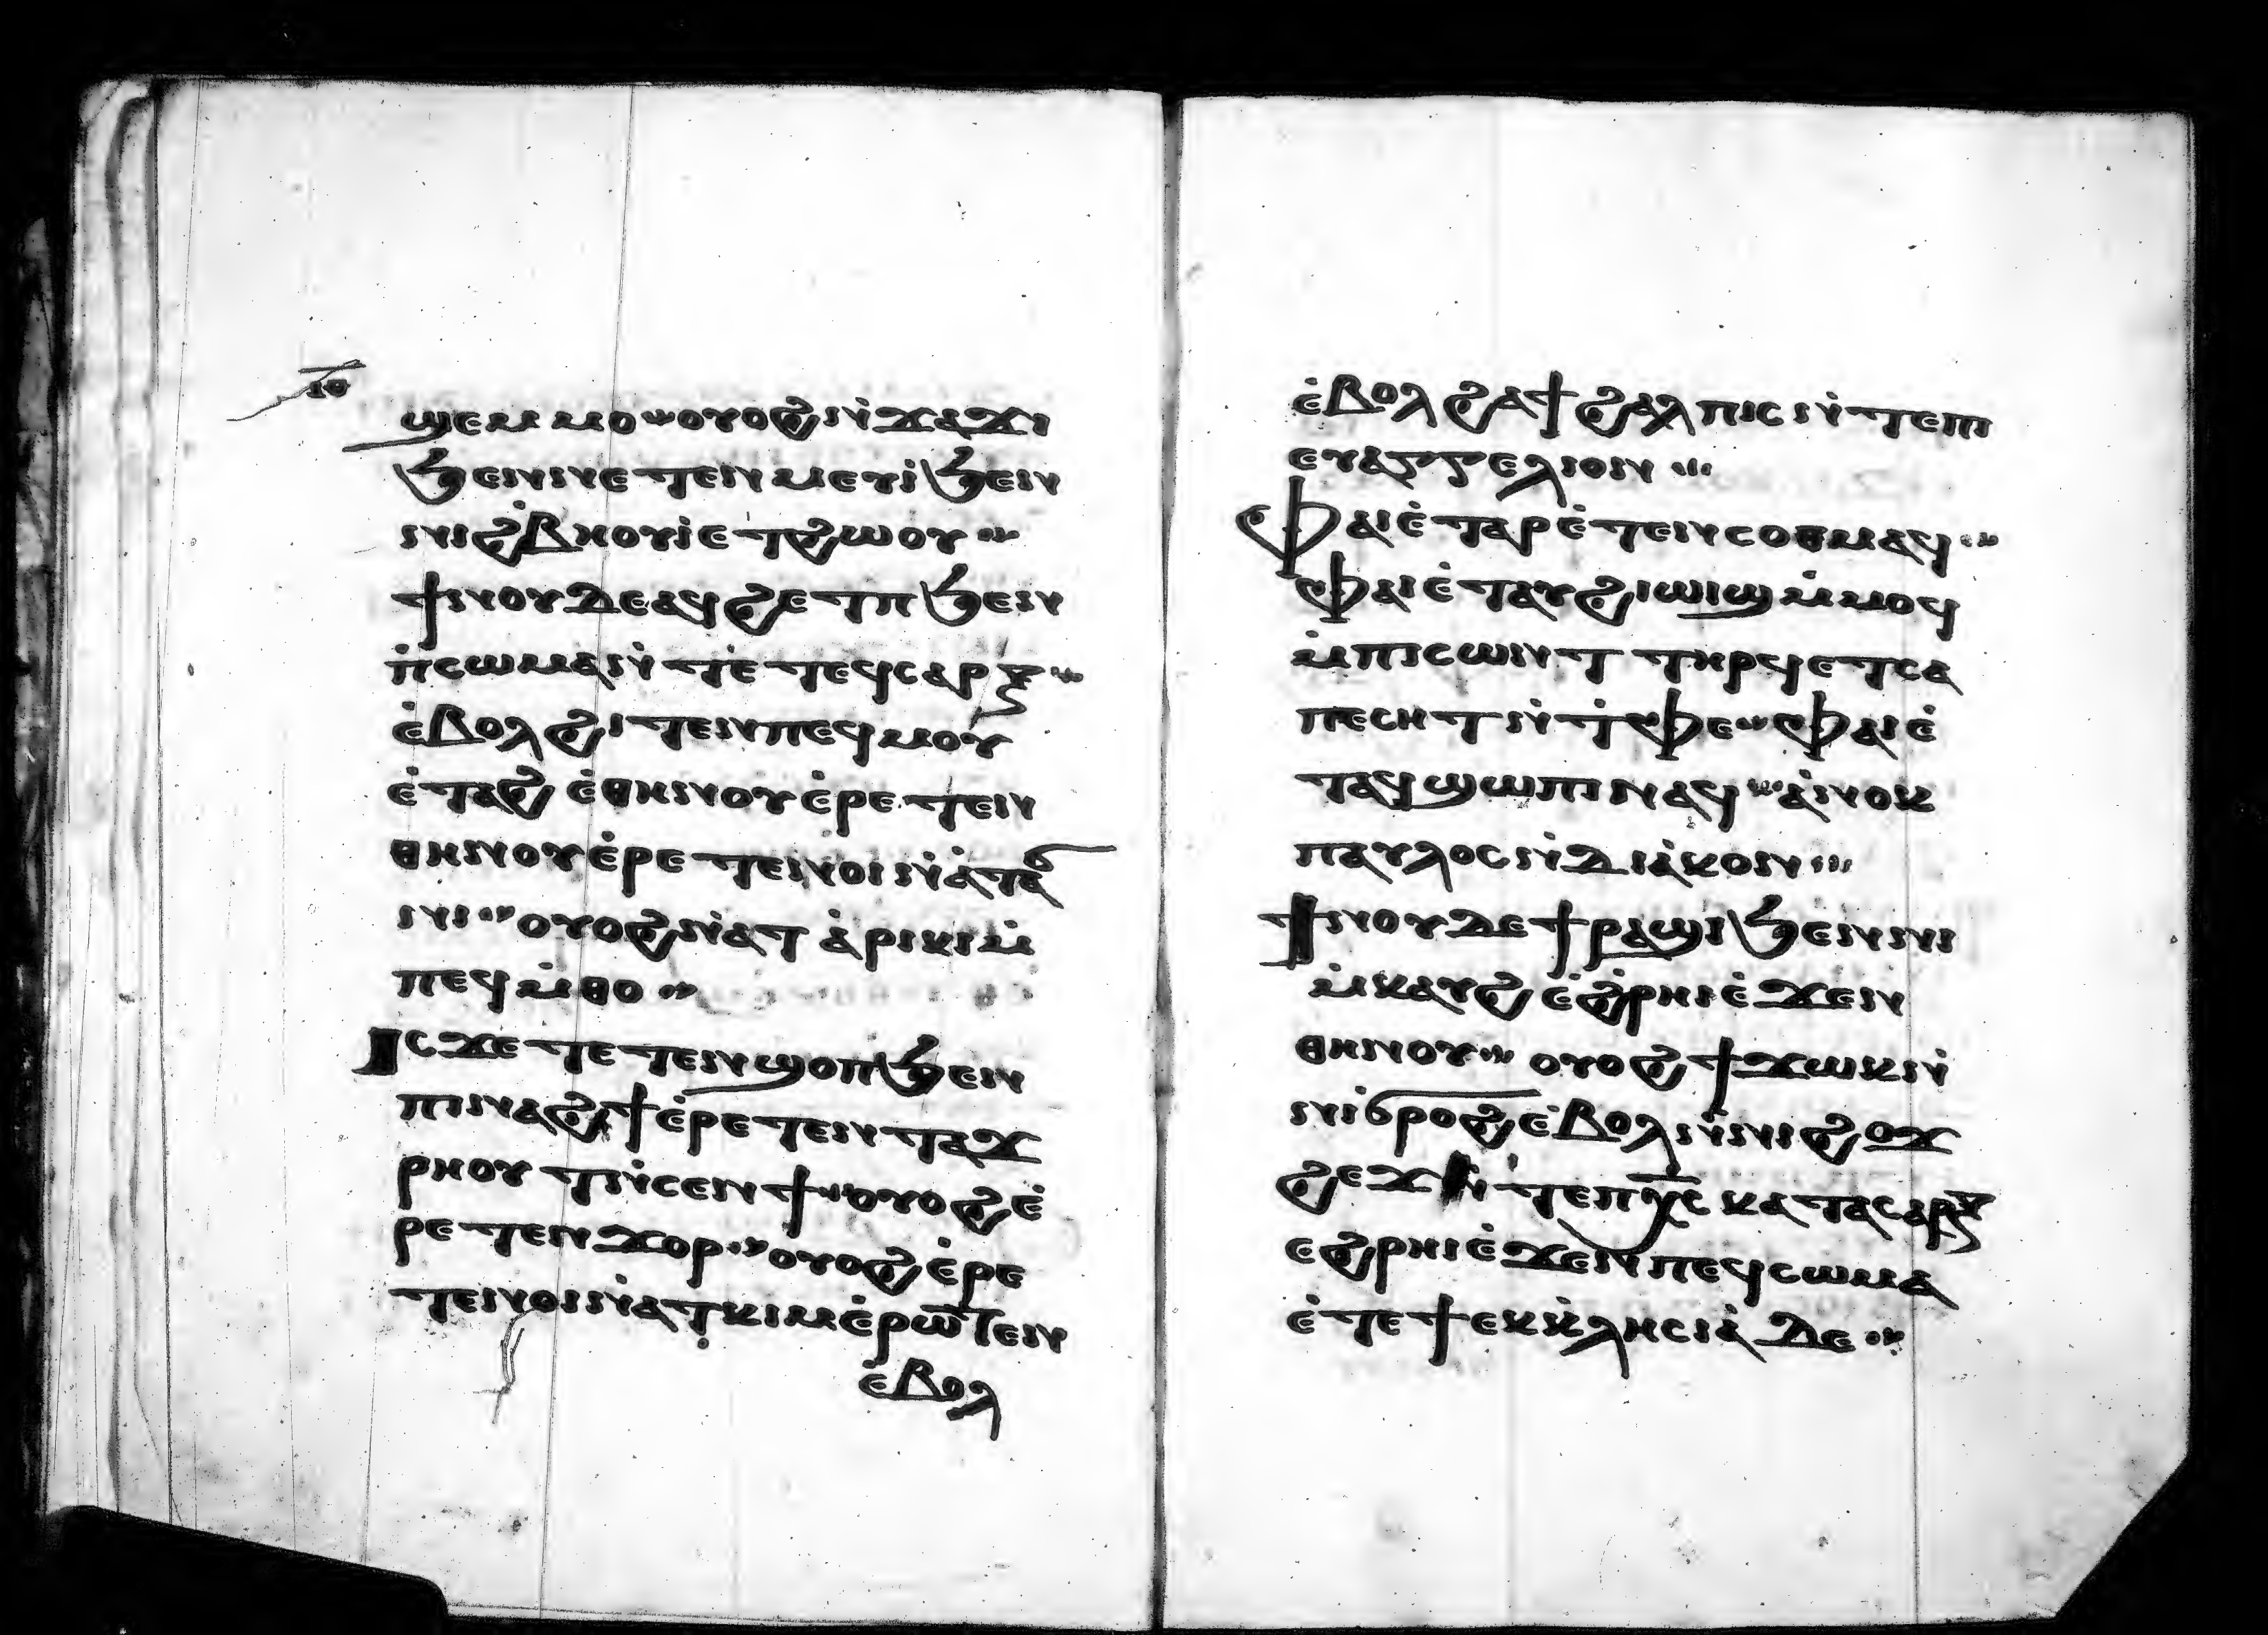 ⲓⲑ
ϣⲉⲙⲙⲟ ⲟⲩⲟϩ ⲛ̇ϫⲁϫⲓ
ϧⲉⲛⲛⲉⲧⲉⲛⲙⲉⲩⲓ̇ ϧⲉⲛ
ⲛⲓϩ̇ⲃⲏⲟⲩⲓ̇ ⲉⲧϩⲱⲟⲩ
ϯⲛⲟⲩ ⲇⲉ ⲁϥϩⲉⲧⲡ ϧⲉⲛ
ⲡ̇ⲥⲱⲙⲁ ⲛ̇ⲧⲉ ⲧⲉϥⲥⲁⲣⲝ
ⲉ̇ⲃⲟⲗϩⲓⲧⲉⲛ ⲡⲉϥⲙⲟⲩ
ⲉ̇ⲧⲁϩⲉ̇ ⲑⲏⲛⲟⲩ ⲉ̇ⲣⲉⲧⲉⲛ
ⲑⲏⲛⲟⲩ ⲉ̇ⲣⲉⲧⲉⲛⲟⲓ ⲛ̇ⲁ̇ⲧⲁϭ
ⲛⲓ ⲟⲩⲟϩ ⲛ̇ⲁⲧ ⲁ̇ⲣⲓⲕⲓ ⲙ̇
ⲡⲉϥⲙ̇ⲑⲟ
Ⲓⲥϫⲉ ⲧⲉⲧⲉⲛϣⲟⲡ ϧⲉⲛ
ⲡⲓⲛⲁϩϯ ⲉ̇ⲣⲉⲧⲉⲛⲧⲁϫ
ⲣⲏⲟⲩⲧ ⲛ̇ⲥⲉⲛϯ ⲟⲩⲟϩ ⲉ̇
ⲣⲉⲧⲉⲛϫⲟⲣ ⲟⲩⲟϩ ⲉ̇ⲣⲉ
ⲧⲉⲛⲟⲓ ⲛ̇ⲁⲧⲕⲓⲙ ⲉ̇ⲣⲱⲧⲉⲛ
ⲉ̇ⲃⲟⲗ
ⲉ̇ⲃⲟⲗϩⲁ ϯϩⲉⲗⲡⲓⲥ ⲛ̇ⲧⲉ ⲡⲓ
ⲉⲩⲁⲅⲅⲉⲗⲓⲟⲛ
Ⲫⲁⲓ ⲉ̇ⲧⲁⲣⲉ̇ⲧⲉⲛⲥⲟⲑⲙⲁϥ
ⲫⲁⲓ ⲉ̇ⲧⲁⲩϩⲓⲱⲓϣ ⲙ̇ⲙⲟϥ
ⲙ̇ⲡⲓⲥⲱⲛⲧ ⲧⲏⲣϥ ⲉⲧⲥⲁ
ⲡⲉⲥⲏⲧ ⲛ̇ⲧ̇ⲫⲉ ⲫⲁⲓ ⲉ̇
ⲧⲁϥϣⲱⲡⲓ ⲛⲁϥ ⲁ̇ⲛⲟⲕ
ⲡⲁⲩⲗⲟⲥ ⲛ̇ⲇⲓⲁ̇ⲕⲟⲛ
Ϯⲛⲟⲩ ⲇⲉ ϯⲣⲁϣⲓ ϧⲉⲛ ⲛⲓ
ⲙ̇ⲕⲁⲩϩ ⲉ̇ϩ̇ⲣⲏⲓ ⲉ̇ϫⲉⲛ
ⲑⲏⲛⲟⲩ ⲟⲩⲟϩ ϯϫⲱⲕ ⲛ̇
ⲛⲓϭⲣⲟϩ ⲉ̇ⲃⲟⲗ ⲛ̇ⲛⲓϩⲟϫ
ϩⲉϫ ⲛ̇ⲧⲉ ⲡⲭ̅ⲥ ⲕⲁⲧⲁ ⲥⲁⲣⲝ
ⲉϩ̇ⲣⲏⲓ ⲉ̇ϫⲉⲛ ⲡⲉϥⲥⲱⲙⲁ
ⲉ̇ⲧⲉ ϯⲉⲕⲕ̇ⲗⲏⲥⲓⲁ̇ ⲇⲉ